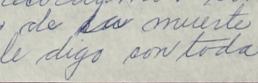 de la muerte
le digo con toda